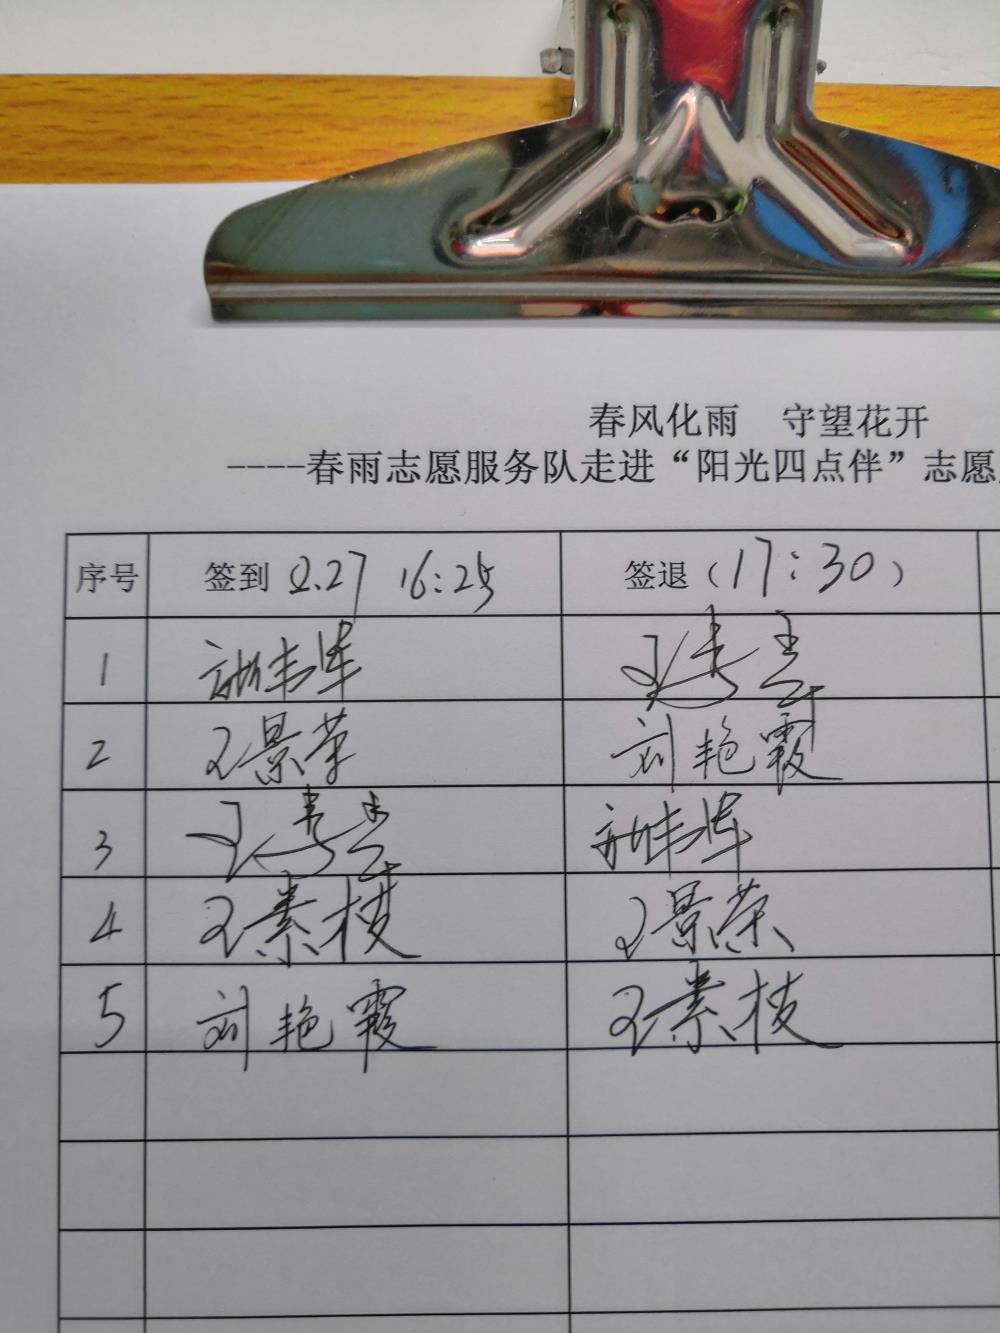 春风化雨 守望花开
----春雨志愿服务队走进“阳光四点伴”志愿
序号 签到 2.27 16:25 签退（17:30）
1
2 王景荣 刘艳霞
3
4 王素枝 王景荣
5 刘艳霞 王素枝